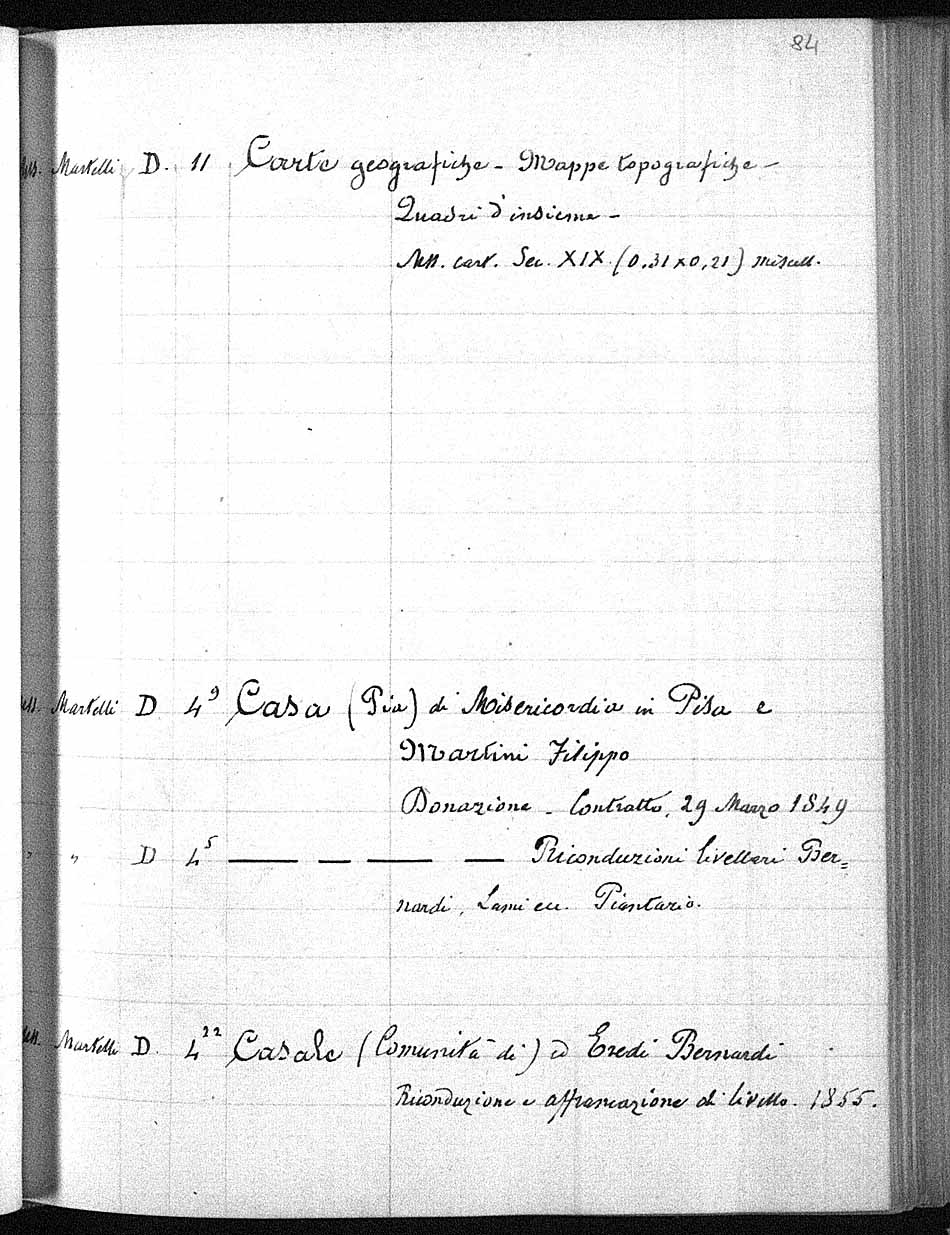 84
Mss. Martelli D. 11 Carte geografiche - Mappe topografiche -
Quadri d'insieme -
Mss. cart. Sec. XIX. (0,31 x 0,21) miscell.
Mss. Martelli D 4⁹ Casa (Pia) di Misericordia in Pisa e
Martini Filippo
Donazione - Contratto, 29 Marzo 1849
" " D 4⁵ — — — — Riconduzioni livellari Ber=
nardi, Lami ecc. Piantario.
Mss. Martelli D. 4²² Casale (Comunità di) ed Eredi Bernardi
Riconduzione e affrancazione di livello. 1855.